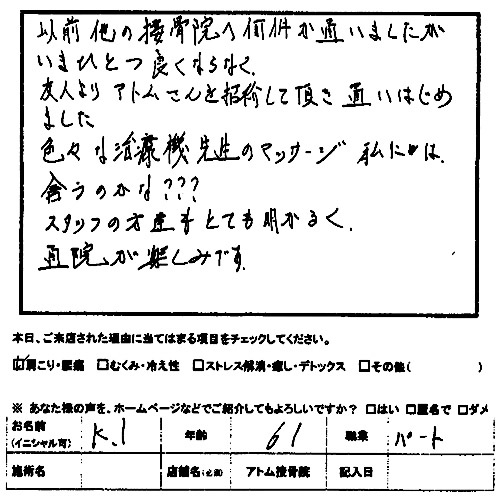 以前他の接骨院へ何件か通いましたが
いまひとつ良くならなく、
友人より アトムさんを紹介して頂き 通いはじめ
ました
色々な治療機 先生のマッサージ 私には、
合うのかな???
スタッフの方達もとても明かるく、
通院が楽しみです。
本日、ご来店された理由に当てはまる項目をチェックしてください。
☑肩こり・腰痛 □むくみ・冷え性 □ストレス解消・癒し・デトックス □その他( )
※ あなた様の声を、ホームページなどでご紹介してもよろしいですか? □はい □匿名で □ダメ
お名前 (イニシャル可) K.I 年齢 61 職業 パート
施術名 店舗名(必須) アトム接骨院 記入日